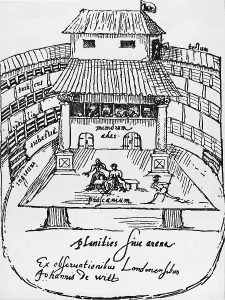 tectum
porticus
orchestra
ingressus
mimorum
ædes
proscænium
planities sive arena
Ex observationibus Londinensibus
Johannis de Witt